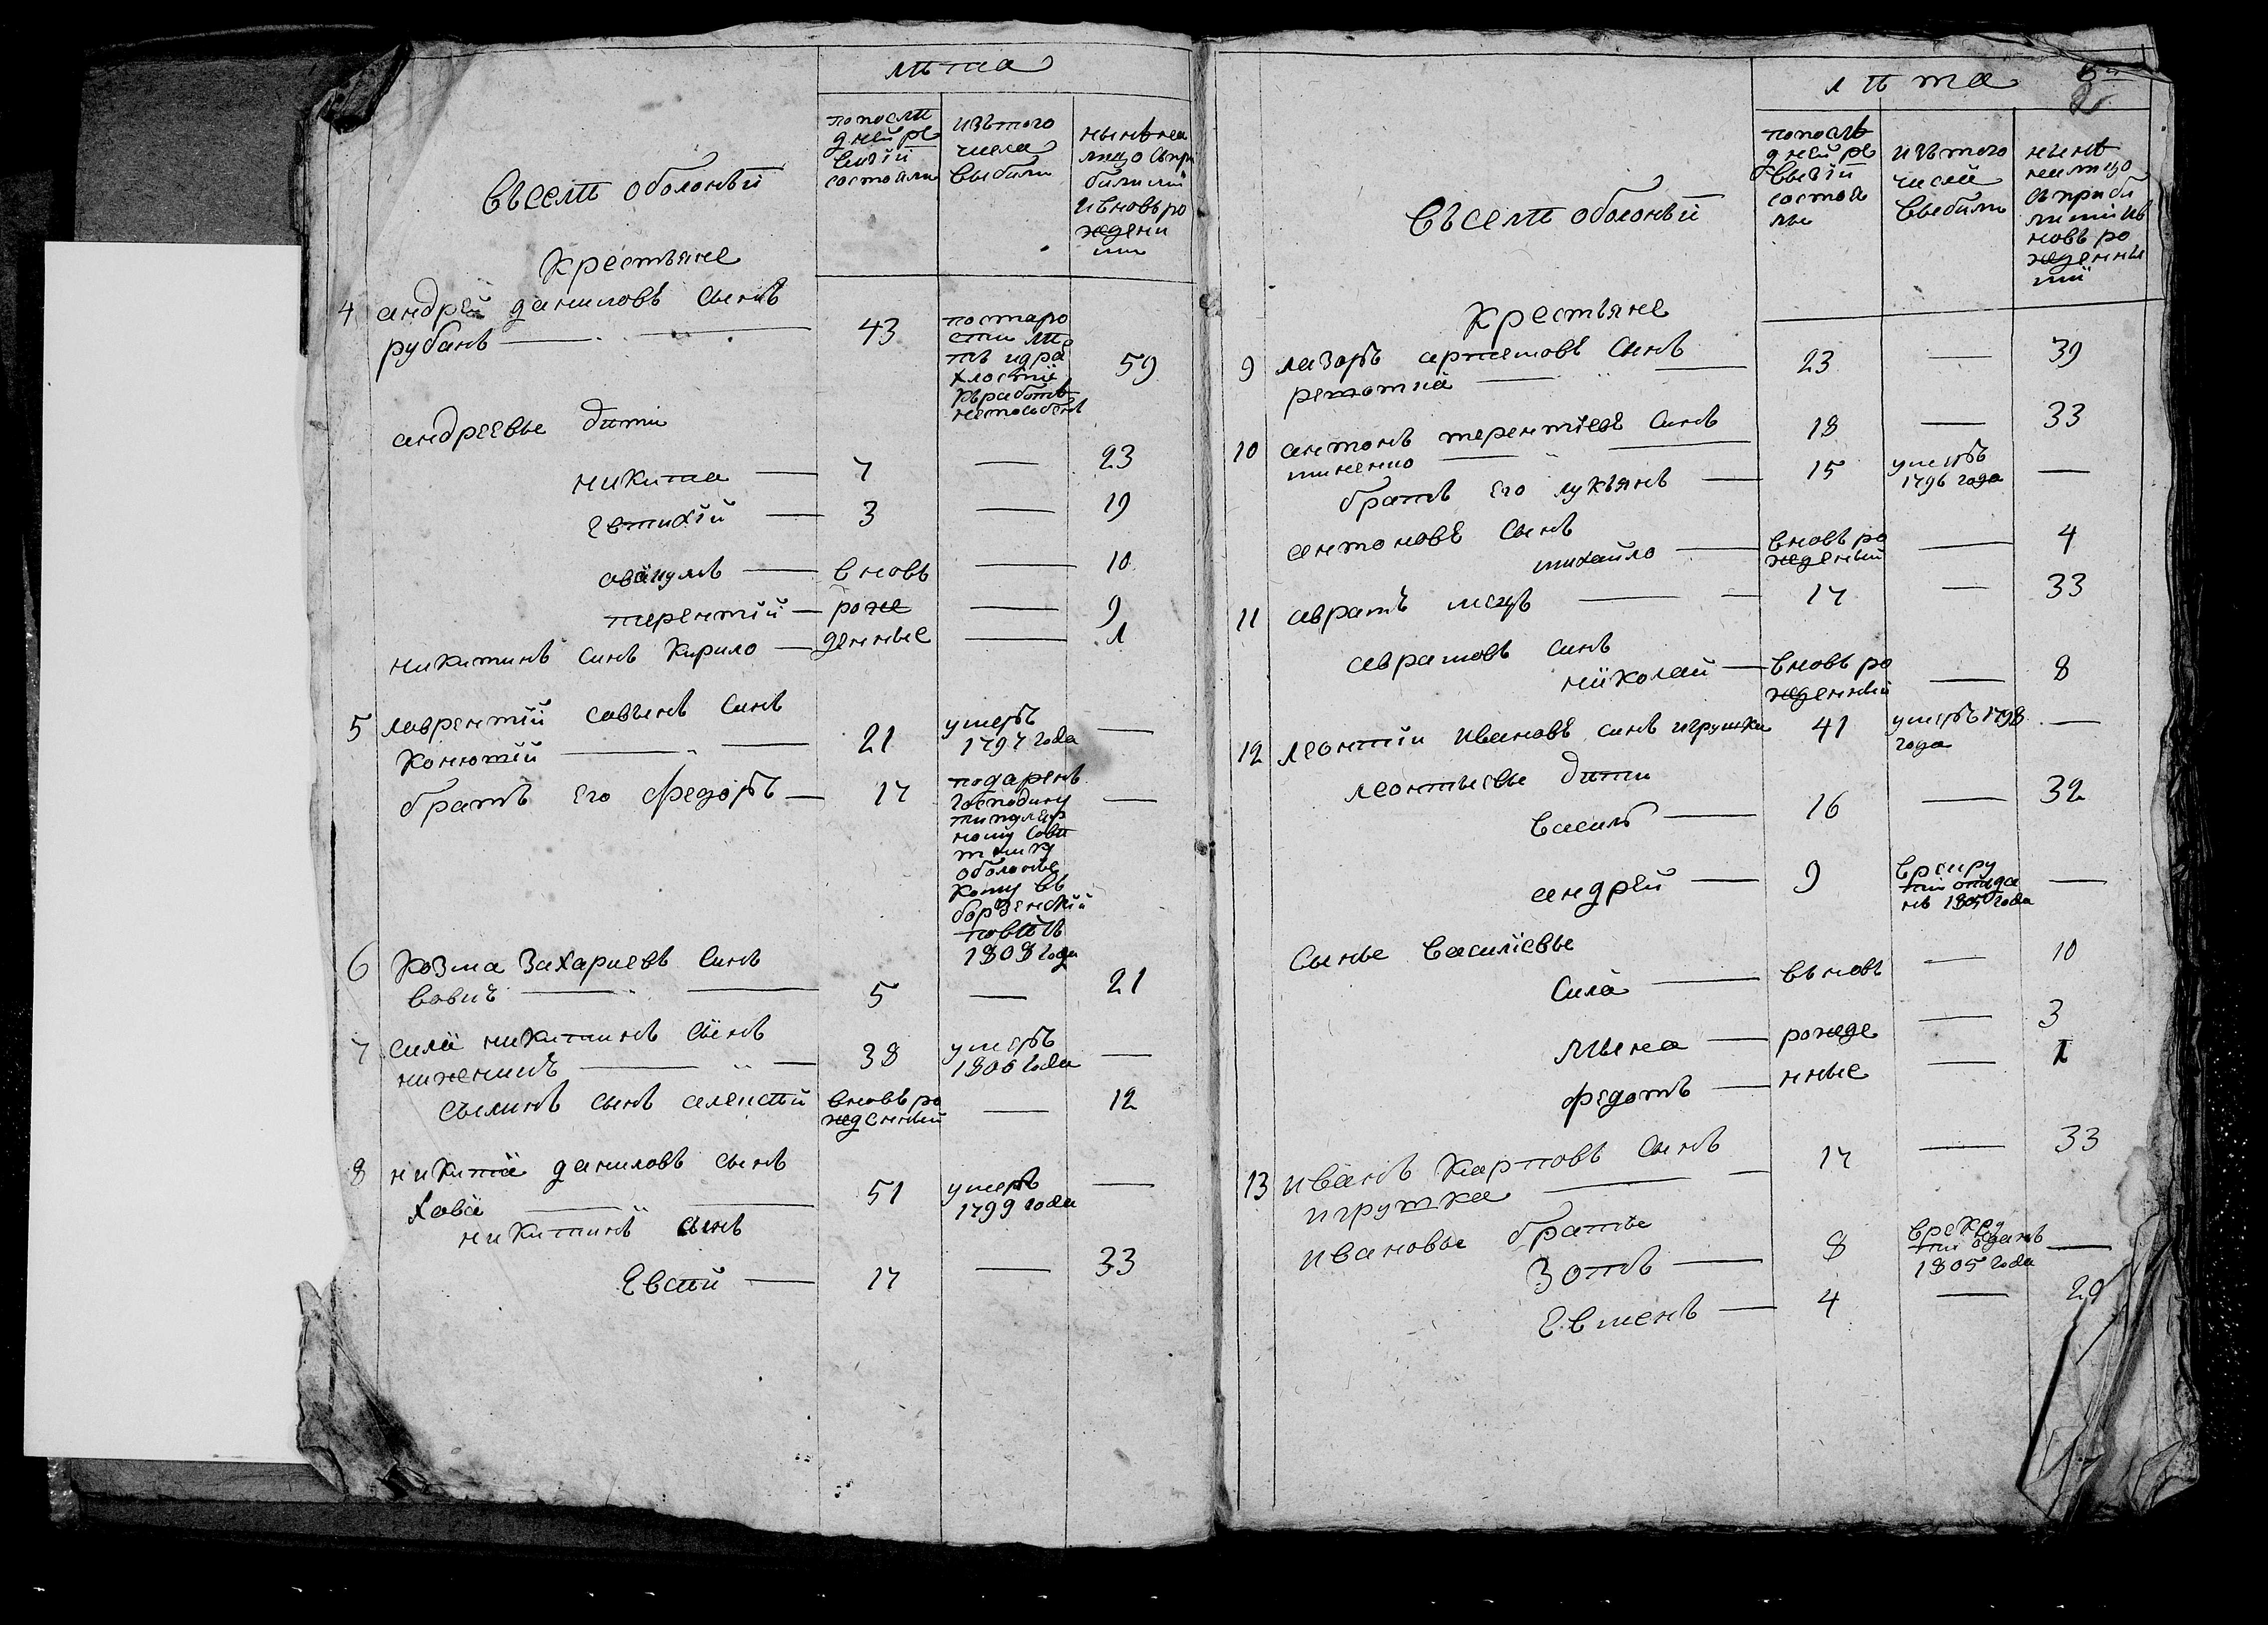 лѣта
попослѣ
дней ре
визїи
состояли
изътого
числа
выбыли
нынѣна
лицо съпри
былими
ивновь ро
ждены
ми
Въселѣ оболонѣй
Крестьяне
4 андрей даниловъ сынъ
рубанъ 43 постаро
сти лѣ
тъ идра
хлости
къработѣ
неспособенъ 59
андреевы дѣти
никита 7 — 23
Евтихїй 3 — 19
вновь — 10
терентїй рожде — 9
никитинъ синъ Кирило денные — 1
5 лаврентїй савинъ синъ
21 умеръ
1797 года —
братъ его Федоръ 17 подаренъ
господину
титуляр
ному совѣ
тнику
оболонс
кому въ
борзенскїй
повѣтъ
1808 года —
6 Козма Захариевъ Синъ
вовчъ 5 — 21
7 сила никитинъ сынъ
38 умеръ
1806 года —
сылинъ сынъ алексѣй вновь ро
жденный — 12
8 никита даниловъ сынъ
хова 51 умеръ
1799 года —
никитинъ сынъ
Евсѣй 17 — 33
лѣта
попослѣ
дней ре
вызїй
состоя
лы
изътого
числа
выбыли
нынѣ
налицо
съприбы
лими ив
новь ро
жденны
мй
Въселѣ оболонѣй
Крестьяне
9 лазоръ артемовъ Сынъ
23 — 39
10 антонъ терентїевъ Синъ
миненко 18 — 33
братъ его лукьянъ 15 умеръ
1796 года —
антоновъ сынъ
михайло вновь ро
жденный — 4
11 аврамъ 17 — 33
аврамовъ синъ
николай вновь ро
жденный — 8
12 леонтїи ивановъ синъ игрушка 41 умеръ 1798
года —
леонтьевы дѣти
василь 16 — 32
андрей 9 врекру
ти отда
нъ 1805 года —
Сыны Василїевы
Сила въновь — 10
Мына рожде — 3
федотъ нные — 1
13 иванъ Карповъ Сынъ
игрушка 17 — 33
ивановы братья
Зотъ 8 врекру
ти оданъ
1805 года —
Евменъ 4 — 20